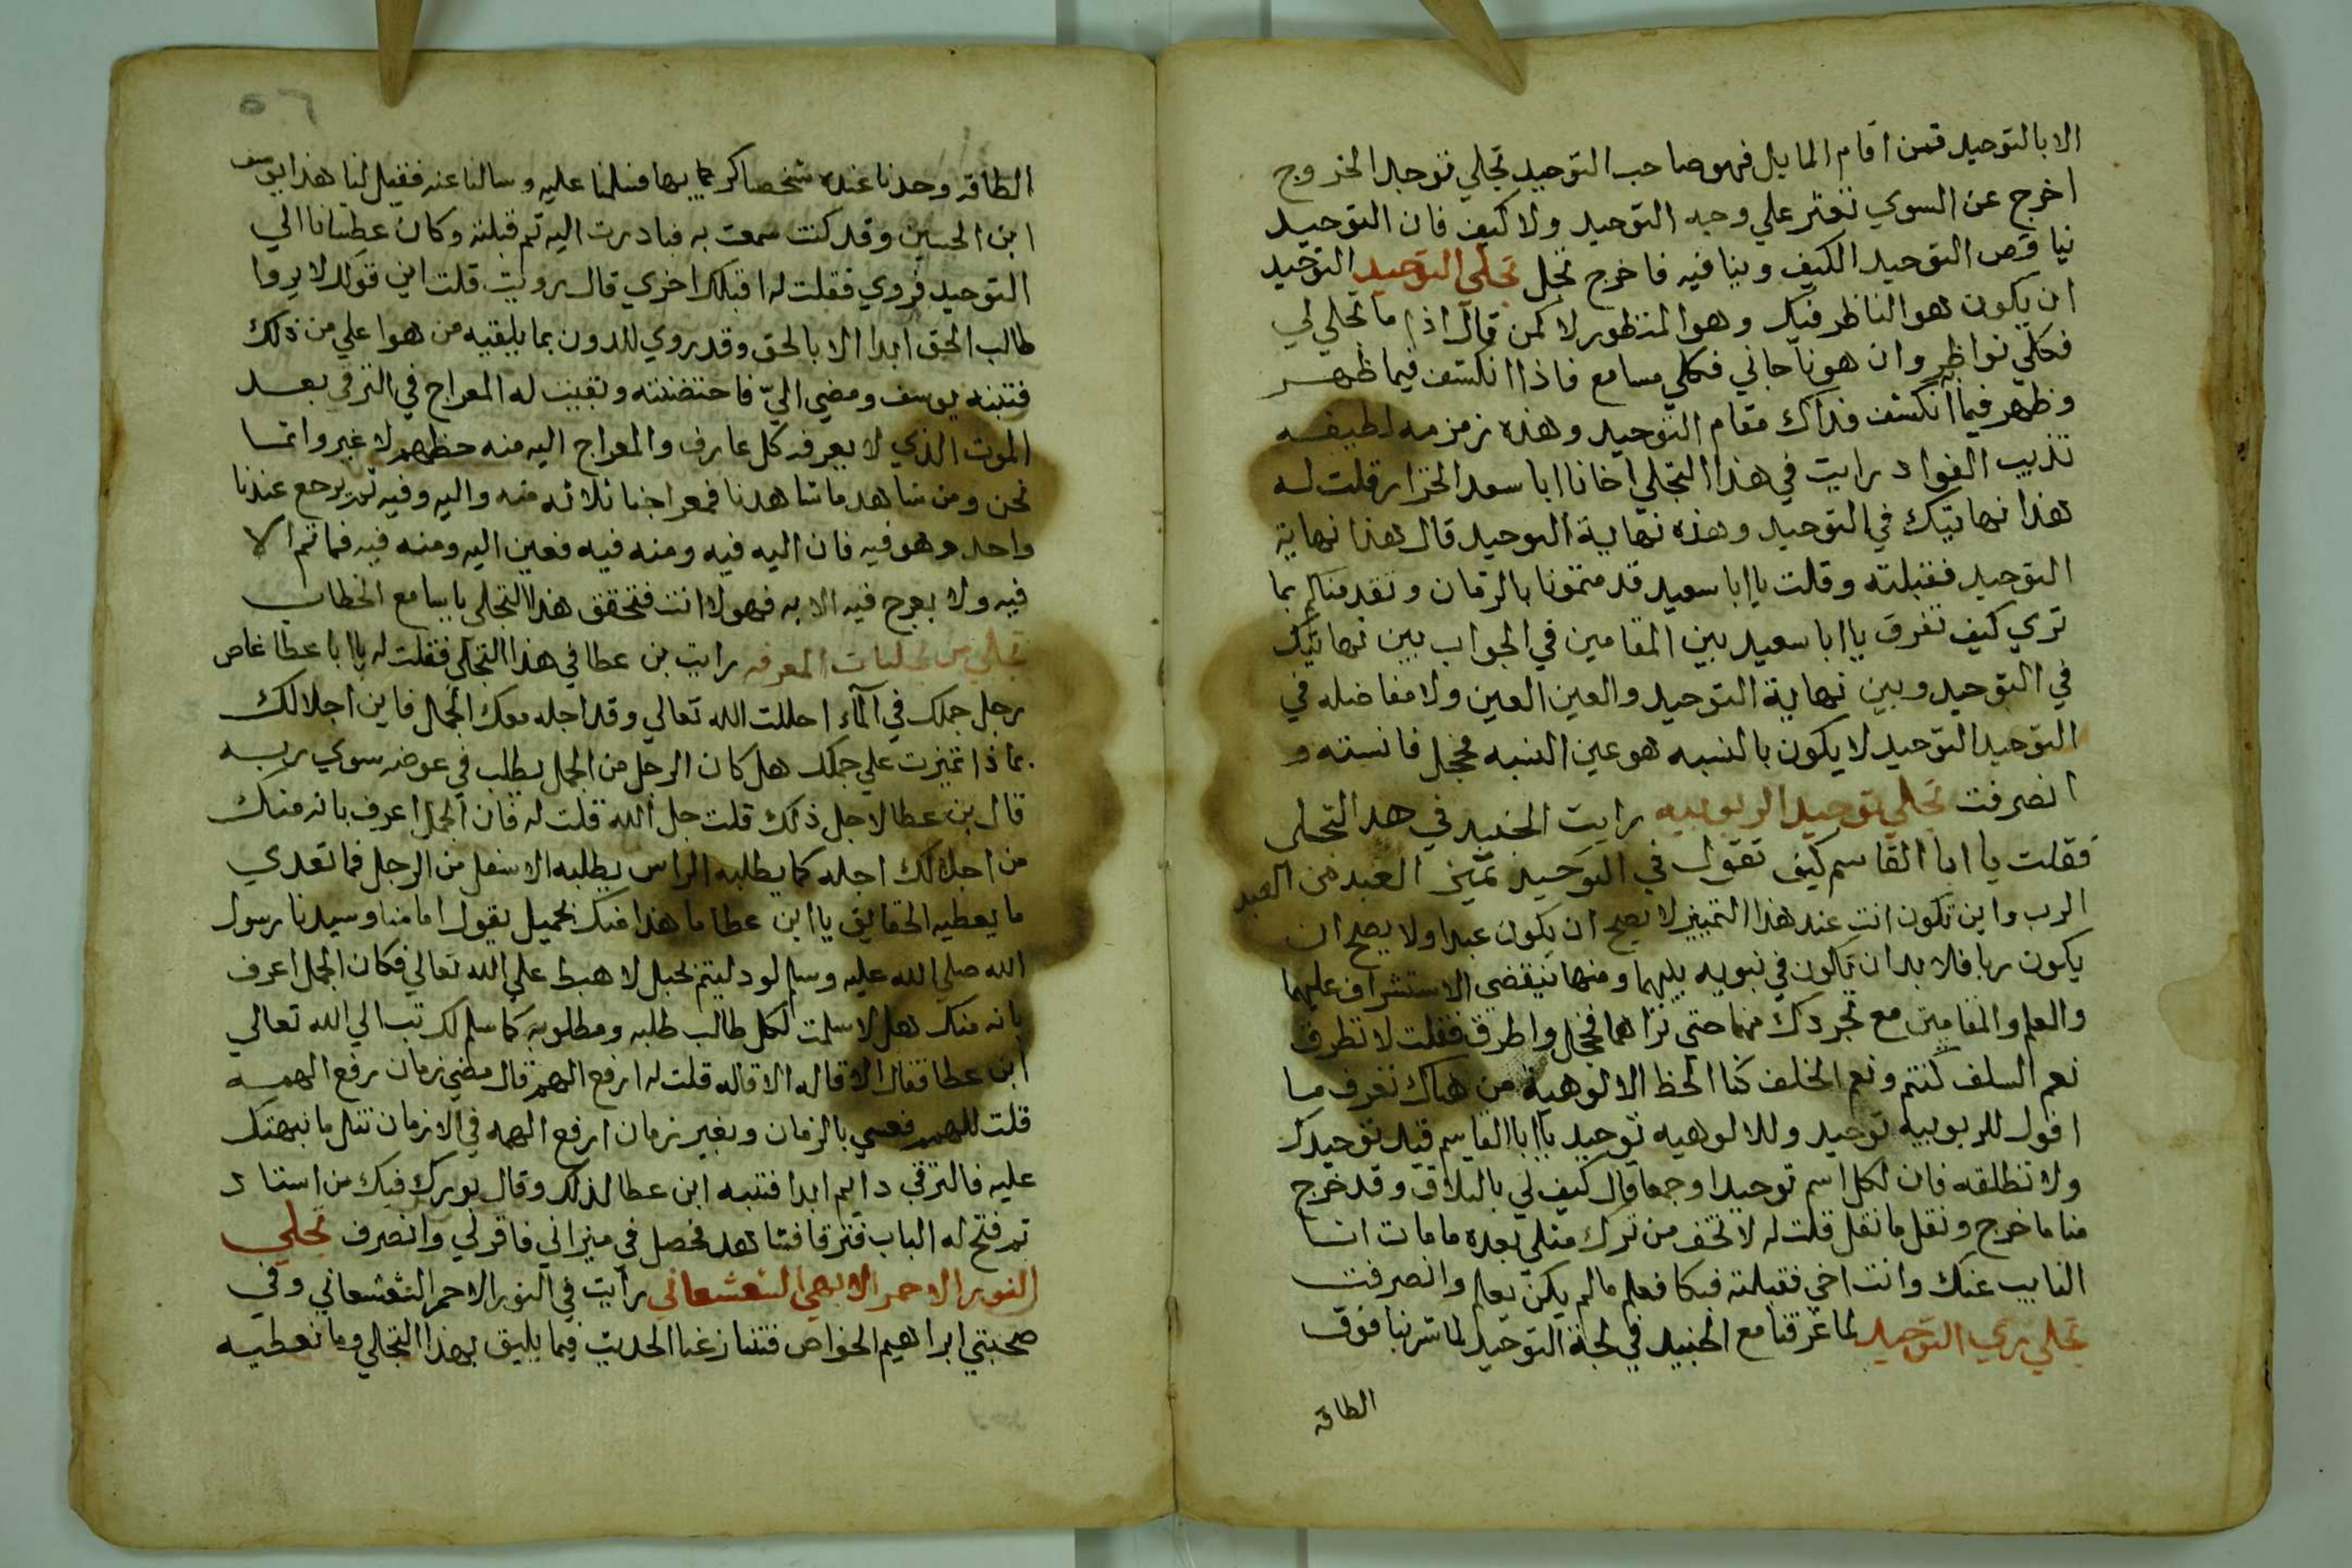 الا بالتوحيد فمن اقام المايل فهو صاحب التوحيد تجلي توحيد الخروج
اخرج عن السوي تعثر علي وجه التوحيد ولا كيف فان التوحيد
يناقص التوحيد الكيف وينافيه فاخرج تجل تجلي التوحيد التوحيد
ان يكون هو الناظر فيك وهو المنظور لا كمن قال اذا ما تجلي لي
فكلي نواظر وان هو ناجاني فكلي مسامع فاذا انكشف فيما ظهر
وظهر فيما انكشف فذاك مقام التوحيد وهذه زمزمه لطيفه
تذيب الفواد رايت في هذا التجلي اخانا ابا سعد الخزار قلت له
هذا نهايتك في التوحيد وهذه نهاية التوحيد قال هذا نهاية
التوحيد فقبلته وقلت يا ابا سعيد قد متمونا بالزمان وتقدمناكم بما
تري كيف تفرق يا ابا سعيد بين المقامين في الجواب بين نهايتك
في التوحيد وبين نهاية التوحيد والعين العين ولا مفاضله في
التوحيد التوحيد لا يكون بالنسبه هو عين النسبه فخجل فانسته و
انصرفت تجلي توحيد الربوبيه رايت الجنيد في هذا التجلي
فقلت يا ابا القاسم كيف تقول في التوحيد تميز العبد من العبد
الرب واين تكون انت عند هذا التمييز لا يصح ان يكون عبدا ولا يصح ان
يكون ربا فلا بد ان تكون في بينهما ومنها تنقضي الاستشراف عليهما
والعلم والمقامين مع تجردك منهما حتى تراهما فخجل واطرق فقلت لا تطرق
نعم السلف كنتم ونعم الخلف كنا الحظ الالوهية من هناك تعرف ما
اقول للربوبيه توحيد وللالوهيه توحيد يا ابا القاسم قيد توحيدك
ولا تطلقه فان لكل اسم توحيدا وجمعا قال كيف لي بالتلاق وقد خرج
منا ما خرج ونقل ما نقل قلت له لا تخف من ترك مثلي بعده ما مات انا
النايب عنك وانت اخي فقبلته فبكا فعلم ما لم يكن يعلم وانصرفت
تجلي ري التوحيد لما غرقنا مع الجنيد في لجة التوحيد لما شربنا فوق
الطاقه
الطاقه وجدنا عنده شخصا كريما بها فسلمنا عليه وسالنا عنه فقيل لنا هذا يوسف
ابن الحسين وقد كنت سمعت به فبادرت اليه ثم قبلته وكان عطشانا الي
التوحيد فروي فقلت له اقبلك اخري قال رويت قلت اين قولك لا يروا
طالب الحق ابدا الا بالحق وقد يروي للدون بما يلقيه من هو اعلي من ذلك
فتنبه يوسف ومضي الي فاحتضنته وتقببت له المعراج في الترقي بعد
الموت الذي لا يعرفه كل عارف والمعراج اليه منه حظهم لا غير وانما
نحن ومن شاهد ما شاهدنا فمعراجنا ثلاثه منه واليه وفيه ثم يرجع عندنا
واحد وهو فيه فان اليه فيه ومنه فيه فعين اليه ومنه فيه فما ثم الا
فيه ولا يعرج فيه الا به فهو لا انت فتحقق هذا التجلي يا سامع الخطاب
تجلي من تجليات المعرفه رايت بن عطا في هذا التجلي فقلت له يا ابا عطا غاص
رجل جملك في الماء احللت الله تعالي وقد اجله معك الجمال فاين اجلالك
بماذا تميزت علي جملك هل كان الرجل من الجمل يطلب في غوضه سوي ربه
قال بن عطا لاجل ذلك قلت جل الله قلت له فان الجمل اعرف بالله منك
من اجلالك اجله كما يطلبه الراس يطلبه الاسفل من الرجل فما تعدي
ما يعطيه الحقايق يا ابن عطا ما هذا منك بجميل يقول امامنا وسيدنا رسول
الله صلي الله عليه وسلم لو دليتم بحبل لاهبط علي الله تعالي فكان الجمل اعرف
بالله منك هلا سلمت لكل طالب طلبه ومطلوبه كما سلم لك تب الي الله تعالي
ابن عطا فقال الاقاله الاقاله قلت له ارفع الهمه قال مضي زمان رفع الهمه
قلت للهمم بالزمان وبغير زمان ارفع الهمه في لا زمان تنل ما نبهتك
عليه فالترقي دايم ابدا فتنبه ابن عطا لذلك وقال بورك فيك من استاد
ثم فتح له الباب فترقا فشاهد فحصل في ميزاني فاقر لي وانصرف تجلي
النور الاحمر الابهي الشعشعاني رايت في النور الاحمر الشعشعاني وفي
صحبتي ابراهيم الخواص فتنازعنا الحديث فيما يليق بهذا التجلي وما تعطيه